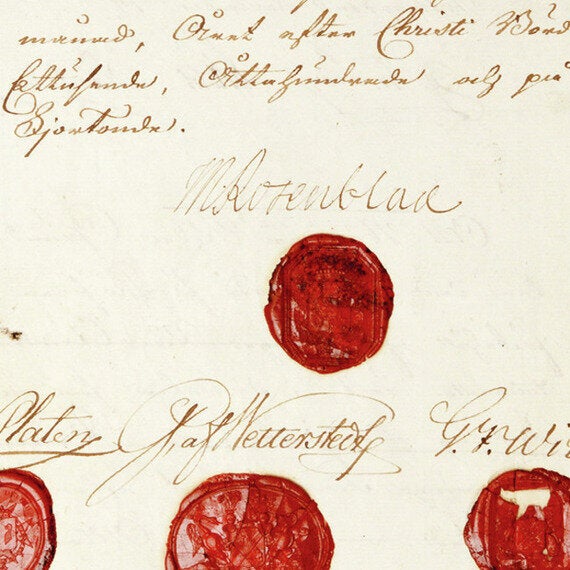 manad, Året efter Christi Börd
Ettusende, Åttahundrade och på
Fjortonde.
M Rosenblad
Platen G af Wetterstedt G. F. Wi